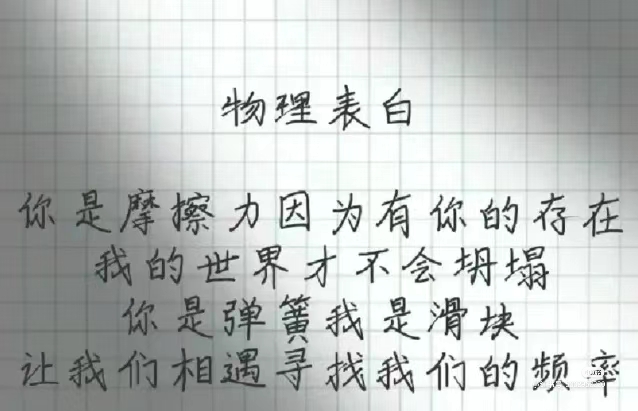 物理表白
你是摩擦力因为有你的存在
我的世界才不会坍塌
你是弹簧我是滑块
让我们相遇寻找我们的频率